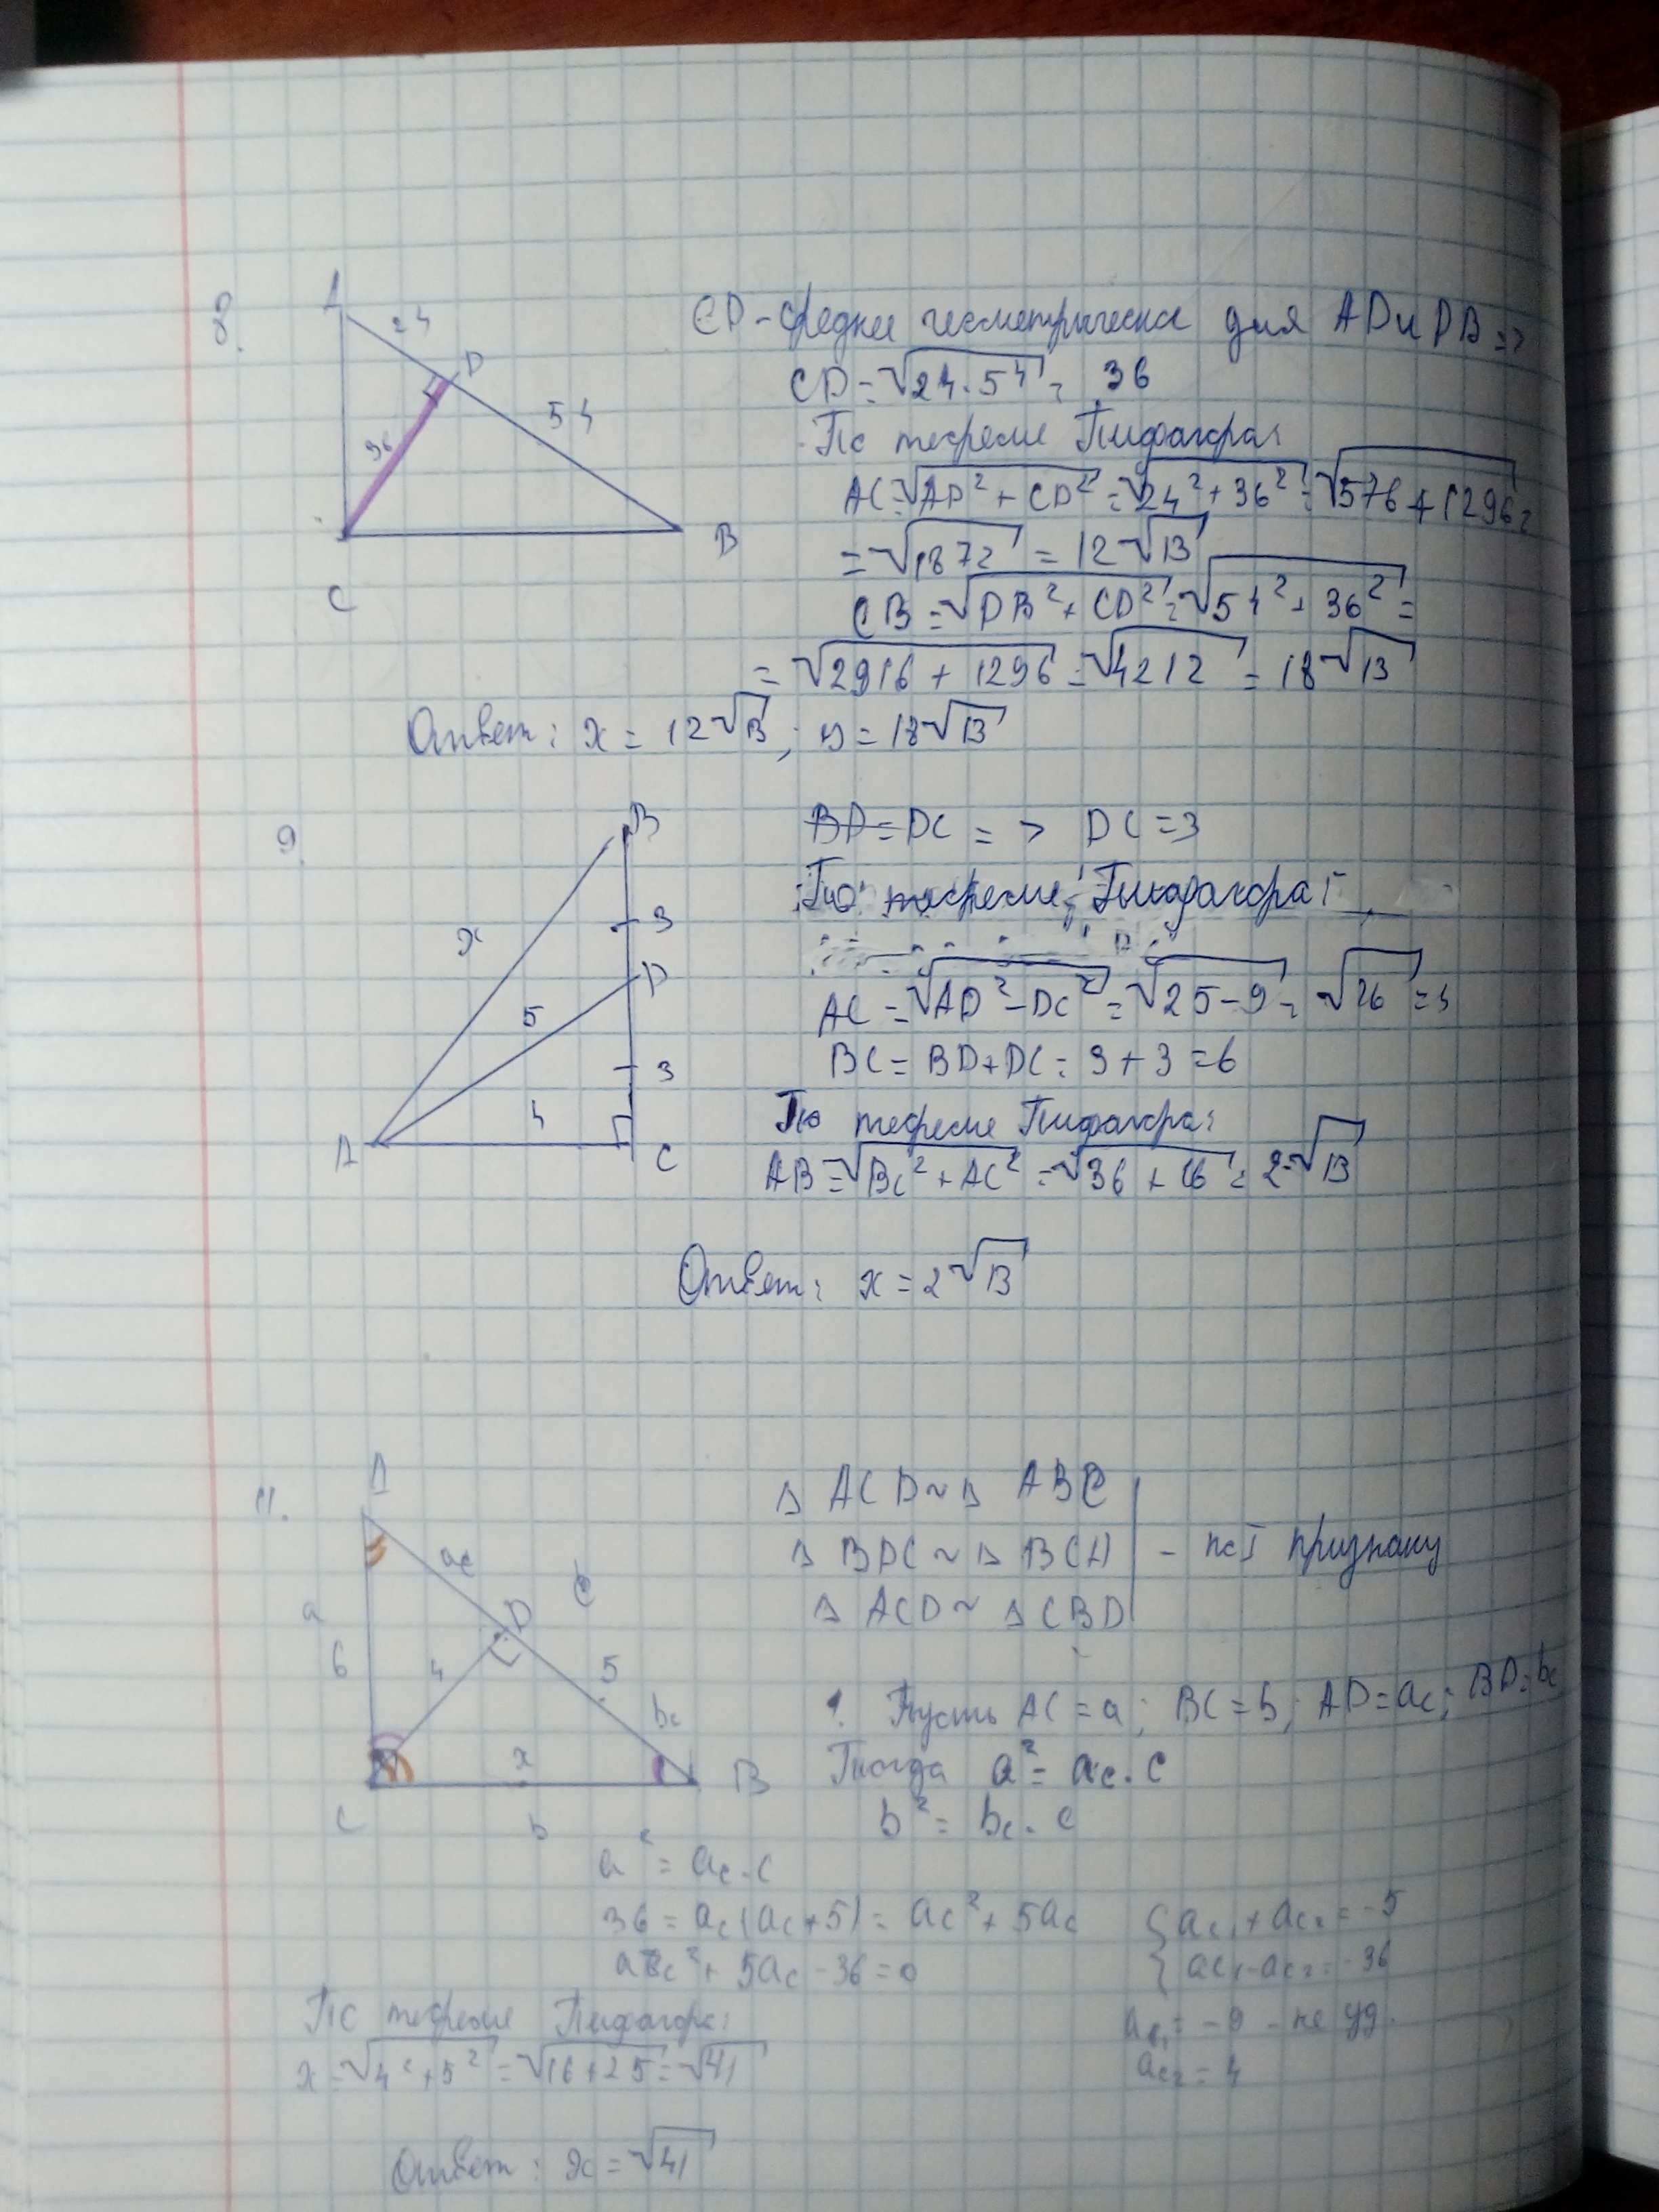 8.
A
24
D
54
36
B
C
CD - среднее геометрическое для AD и DB =>
CD = √24·54 = 36
По теореме Пифагора:
AC = √AD² + CD² = √24² + 36² = √576 + 1296 =
= √1872 = 12√13
CB = √DB² + CD² = √54² + 36² =
= √2916 + 1296 = √4212 = 18√13
Ответ: x = 12√13; y = 18√13
9.
B
3
x
D
5
3
4
A
C
BD = DC => DC = 3
По теореме Пифагора:
AC = √AD² - DC² = √25 - 9 = √16 = 4
BC = BD + DC = 3 + 3 = 6
По теореме Пифагора:
AB = √BC² + AC² = √36 + 16 = 2√13
Ответ: x = 2√13
11.
A
ac
c
D
a
6
4
5
bc
x
B
C
b
Δ ACD ~ Δ ABC
Δ BDC ~ Δ BCA - по I признаку
Δ ACD ~ Δ CBD
1. Пусть AC = a; BC = b; AD = ac; BD = bc
Тогда a² = ac · c
b² = bc · c
a² = ac · c
36 = ac(ac + 5) = ac² + 5ac
ac² + 5ac - 36 = 0
{ ac₁ + ac₂ = -5
{ ac₁ · ac₂ = -36
ac₁ = -9 - не уд.
ac₂ = 4
По теореме Пифагора:
x = √4² + 5² = √16 + 25 = √41
Ответ: x = √41